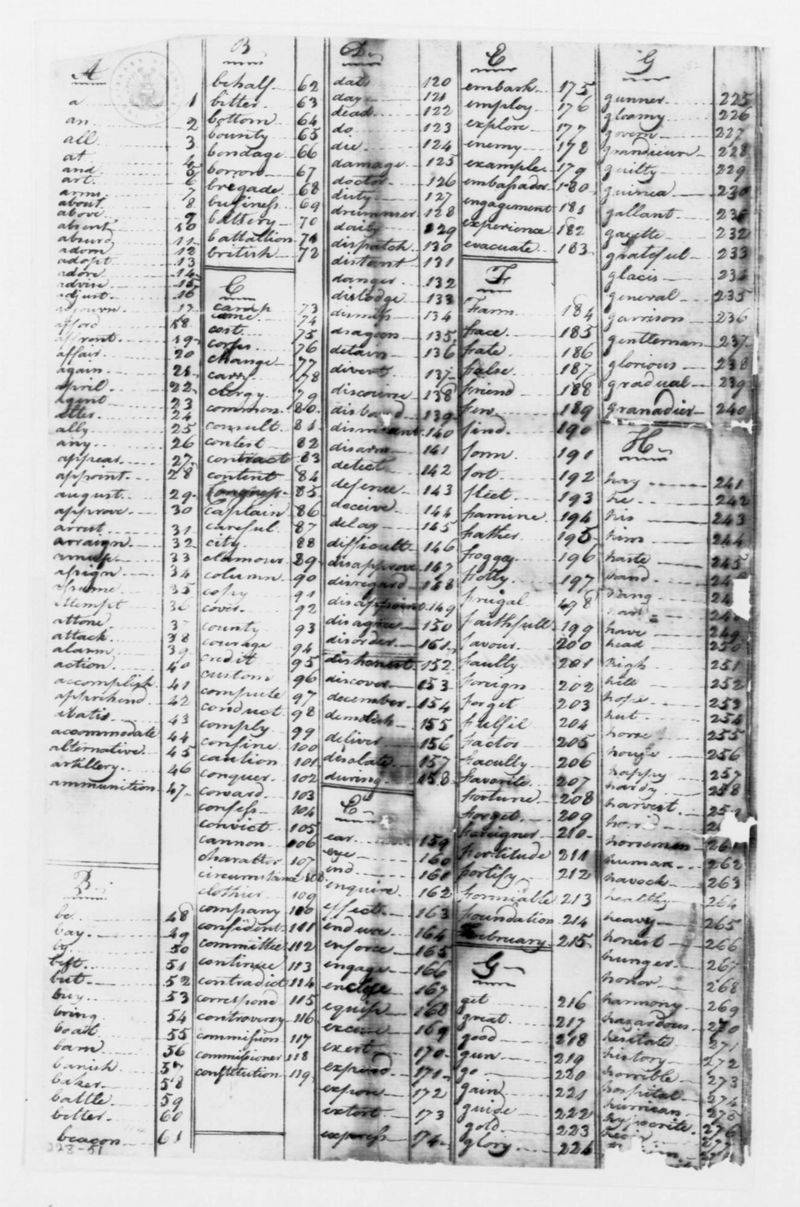 A
a 1
an 2
all 3
at 4
and 5
art 6
arms 7
about 8
above 9
absent 10
absurd 11
adorn 12
adopt 13
adore 14
advise 15
adjust 16
adjourn 17
afford 18
affront 19
affair 20
again 21
april 22
agent 23
alter 24
ally 25
any 26
appear 27
appoint 28
august 29
approve 30
arrest 31
arraign 32
amuse 33
assign 34
assume 35
attempt 36
attone 37
attack 38
alarm 39
action 40
accomplish 41
apprehend 42
abatis 43
accommodate 44
alternative 45
artillery 46
ammunition 47
B
be 48
bay 49
by 50
best 51
but 52
buy 53
bring 54
boat 55
barn 56
banish 57
baker 58
battle 59
better 60
beacon 61
223-51
B
behalf 62
bitter 63
bottom 64
bounty 65
bondage 66
borrow 67
bregade 68
business 69
battery 70
battallion 71
british 72
C
camp 73
came 74
cost 75
corps 76
change 77
carry 78
clergy 79
common 80
consult 81
contest 82
contract 83
content 84
Congress 85
captain 86
careful 87
city 88
clamour 89
column 90
copy 91
cover 92
county 93
courage 94
credit 95
custom 96
compute 97
conduct 98
comply 99
confine 100
caution 101
conquer 102
coward 103
confess 104
convict 105
cannon 106
character 107
circumstance 108
clothier 109
company 110
confident 111
committee 112
continue 113
contradict 114
correspond 115
controversy 116
commission 117
commissioner 118
constitution 119
D
date 120
day 121
dead 122
do 123
die 124
damage 125
doctor 126
duty 127
drummer 128
daily 129
dispatch 130
distant 131
danger 132
dislodge 133
dismiss 134
dragoon 135
detain 136
divert 137
discourse 138
disband 139
dismount 140
disarm 141
detect 142
defence 143
deceive 144
delay 145
difficult 146
disapprove 147
disregard 148
disappoint 149
disagree 150
disorder 151
dishonest 152
discover 153
december 154
demolish 155
deliver 156
desolate 157
during 158
E
ear 159
eye 160
end 161
enquire 162
effect 163
endure 164
enforce 165
engage 166
enclose 167
equip 168
excuse 169
exert 170
expend 171
expose 172
extort 173
express 174
E
embark 175
employ 176
explore 177
enemy 178
example 179
embassador 180
engagement 181
experience 182
evacuate 183
F
Farm 184
face 185
fate 186
false 187
friend 188
few 189
find 190
form 191
fort 192
fleet 193
famine 194
father 195
foggy 196
folly 197
frugal 198
faithfull 199
favour 200
faulty 201
foreign 202
forget 203
fulfil 204
factor 205
faculty 206
favorite 207
fortune 208
forget 209
foreigner 210
fortitude 211
fortify 212
formiable 213
foundation 214
February 215
G
get 216
great 217
good 218
gun 219
go 220
gain 221
guide 222
gold 223
glory 224
G
gunner 225
gloomy 226
govern 227
grandieur 228
guilty 229
guinea 230
gallant 231
gazette 232
grateful 233
glacis 234
general 235
garrison 236
gentleman 237
glorious 238
gradual 239
granadier 240
H
hay 241
he 242
his 243
him 244
haste 245
hand 24
hang 24
have 249
head 250
high 251
hill 252
hope 253
hut 254
horse 255
house 256
happy 257
hardy 258
harvest 259
horsemen
human 262
havock 263
healthy 264
heavy 265
honest 266
hunger 267
honor 268
harmony 269
hazardous 270
hesitate 271
history 272
horrible 273
hospital 274
hurrican 275
hypocrite 276